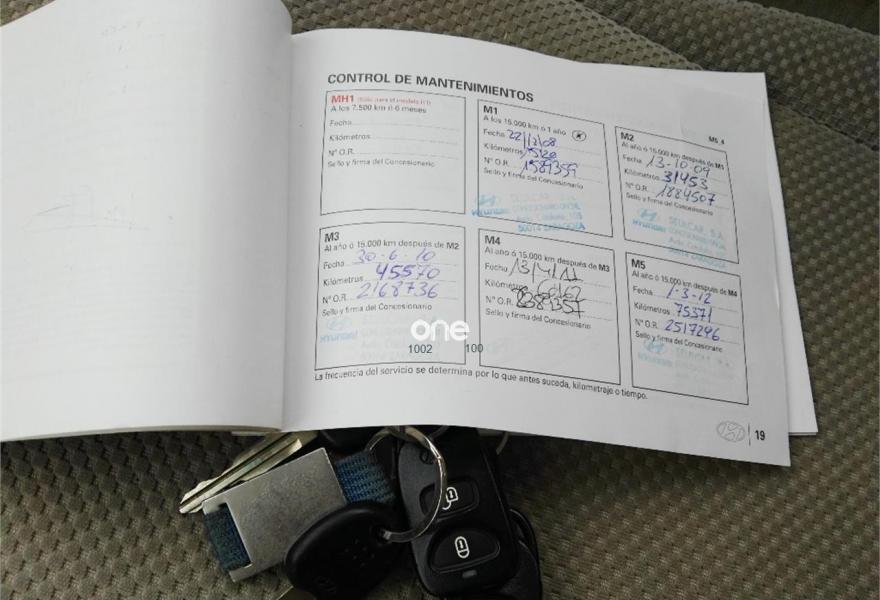 CONTROL DE MANTENIMIENTOS
MH1 (Sólo para el modelo H1)
A los 7.500 km ó 6 meses
Fecha
Kilómetros
Nº O.R.
Sello y firma del Concesionario
M1
A los 15.000 km ó 1 año
Fecha 22/12/08
Kilómetros 15120
Nº O.R. 1589359
Sello y firma del Concesionario
HYUNDAI
50014 ZARAGOZA
M5_4
M2
Al año ó 15.000 km después de M1
Fecha 13-10-09
Kilómetros 31453
Nº O.R. 1884507
Sello y firma del Concesionario
HYUNDAI
M3
Al año ó 15.000 km después de M2
Fecha 30-6-10
Kilómetros 45570
Nº O.R. 2168736
Sello y firma del Concesionario
HYUNDAI
M4
Al año ó 15.000 km después de M3
Fecha 13/4/11
Kilómetros
Nº O.R.
Sello y firma del Concesionario
M5
Al año ó 15.000 km después de M4
Fecha 1-3-12
Kilómetros 75371
Nº O.R. 2517296
Sello y firma del Concesionario
one
1002 100
La frecuencia del servicio se determina por lo que antes suceda, kilometraje o tiempo.
19